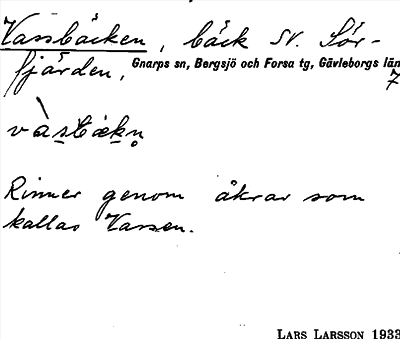 Vassbäcken, bäck SV. Sör-
fjärden, Gnarps sn, Bergsjö och Forsa tg, Gävleborgs län
7
Rinner genom åkrar som
kallas Vassen.
LARS LARSSON 1933